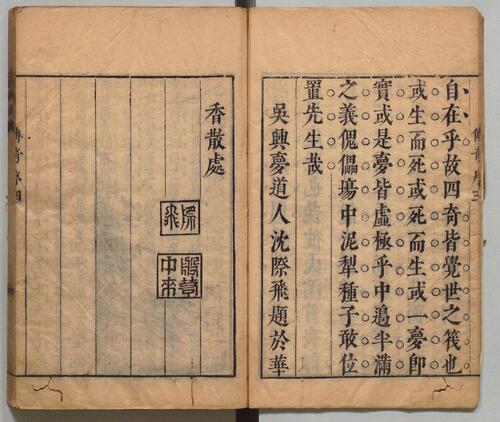 自在乎故四奇皆覺世之筏也
或生而死或死而生或一夢卽
實或是夢皆虛極乎中邊半滿
之義傀儡塲中泥犁種子敢位
置先生哉
吳興夢道人沈際飛題於華
香散處
際飛
傳奇序三
傳奇序四